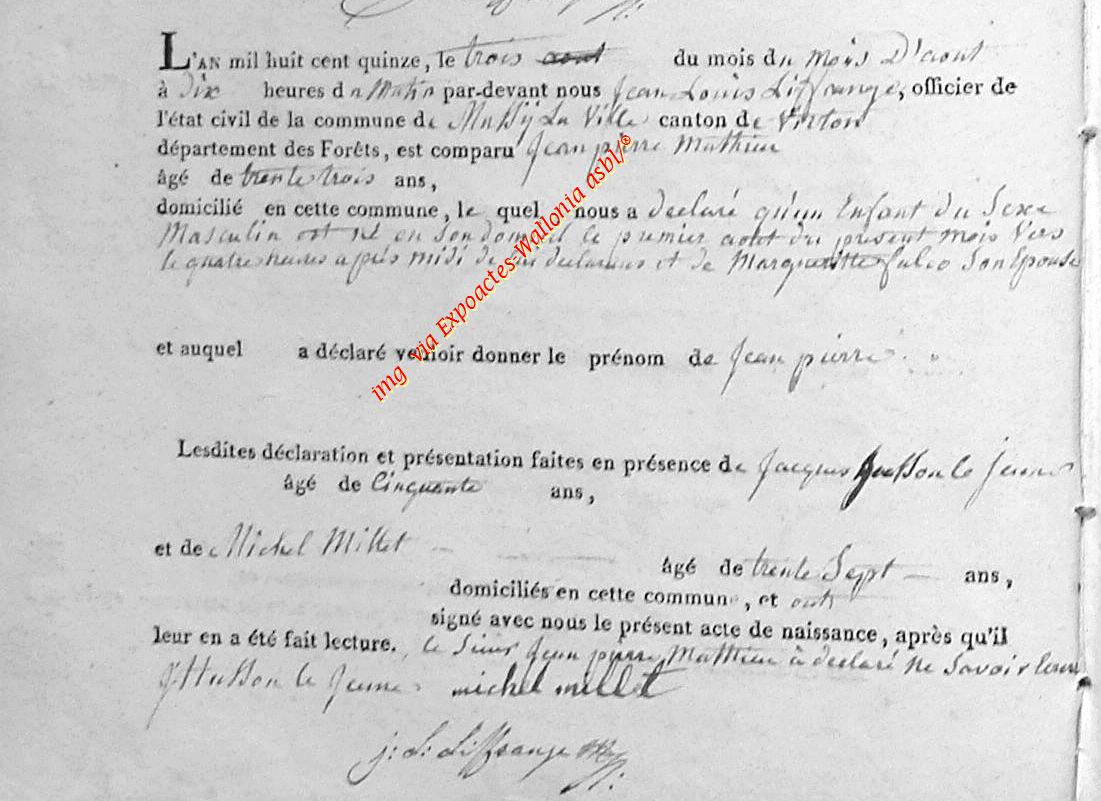 L'AN mil huit cent quinze, le trois aout du mois du mois D'aout
à Dix heures du Matin par-devant nous Jean Louis Liffrange, officier de
l'état civil de la commune de Mussy La Ville canton de Virton
département des Forêts, est comparu Jean pierre Mathieu
âgé de trente trois ans,
domicilié en cette commune, le quel nous a declaré qu'un Enfant du Sexe
Masculin est né en son domicil le premier aout du present mois vers
le quatre heures après midi de lui declarans et de Margueritte Son Epouse
et auquel a déclaré vouloir donner le prénom de Jean pierre
Lesdites déclaration et présentation faites en présence de Jacques husson le jeune
âgé de Cinquante ans,
et de Michel Millet
âgé de trente Sept ans,
domiciliés en cette commune, et ont
signé avec nous le présent acte de naissance, après qu'il
leur en a été fait lecture. le Sieur Jean pierre Mathieu à declaré ne Savoir
J Husson le Jeune michel millet
j: L: Liffrange
img via Expoactes-Wallonia asbl/®